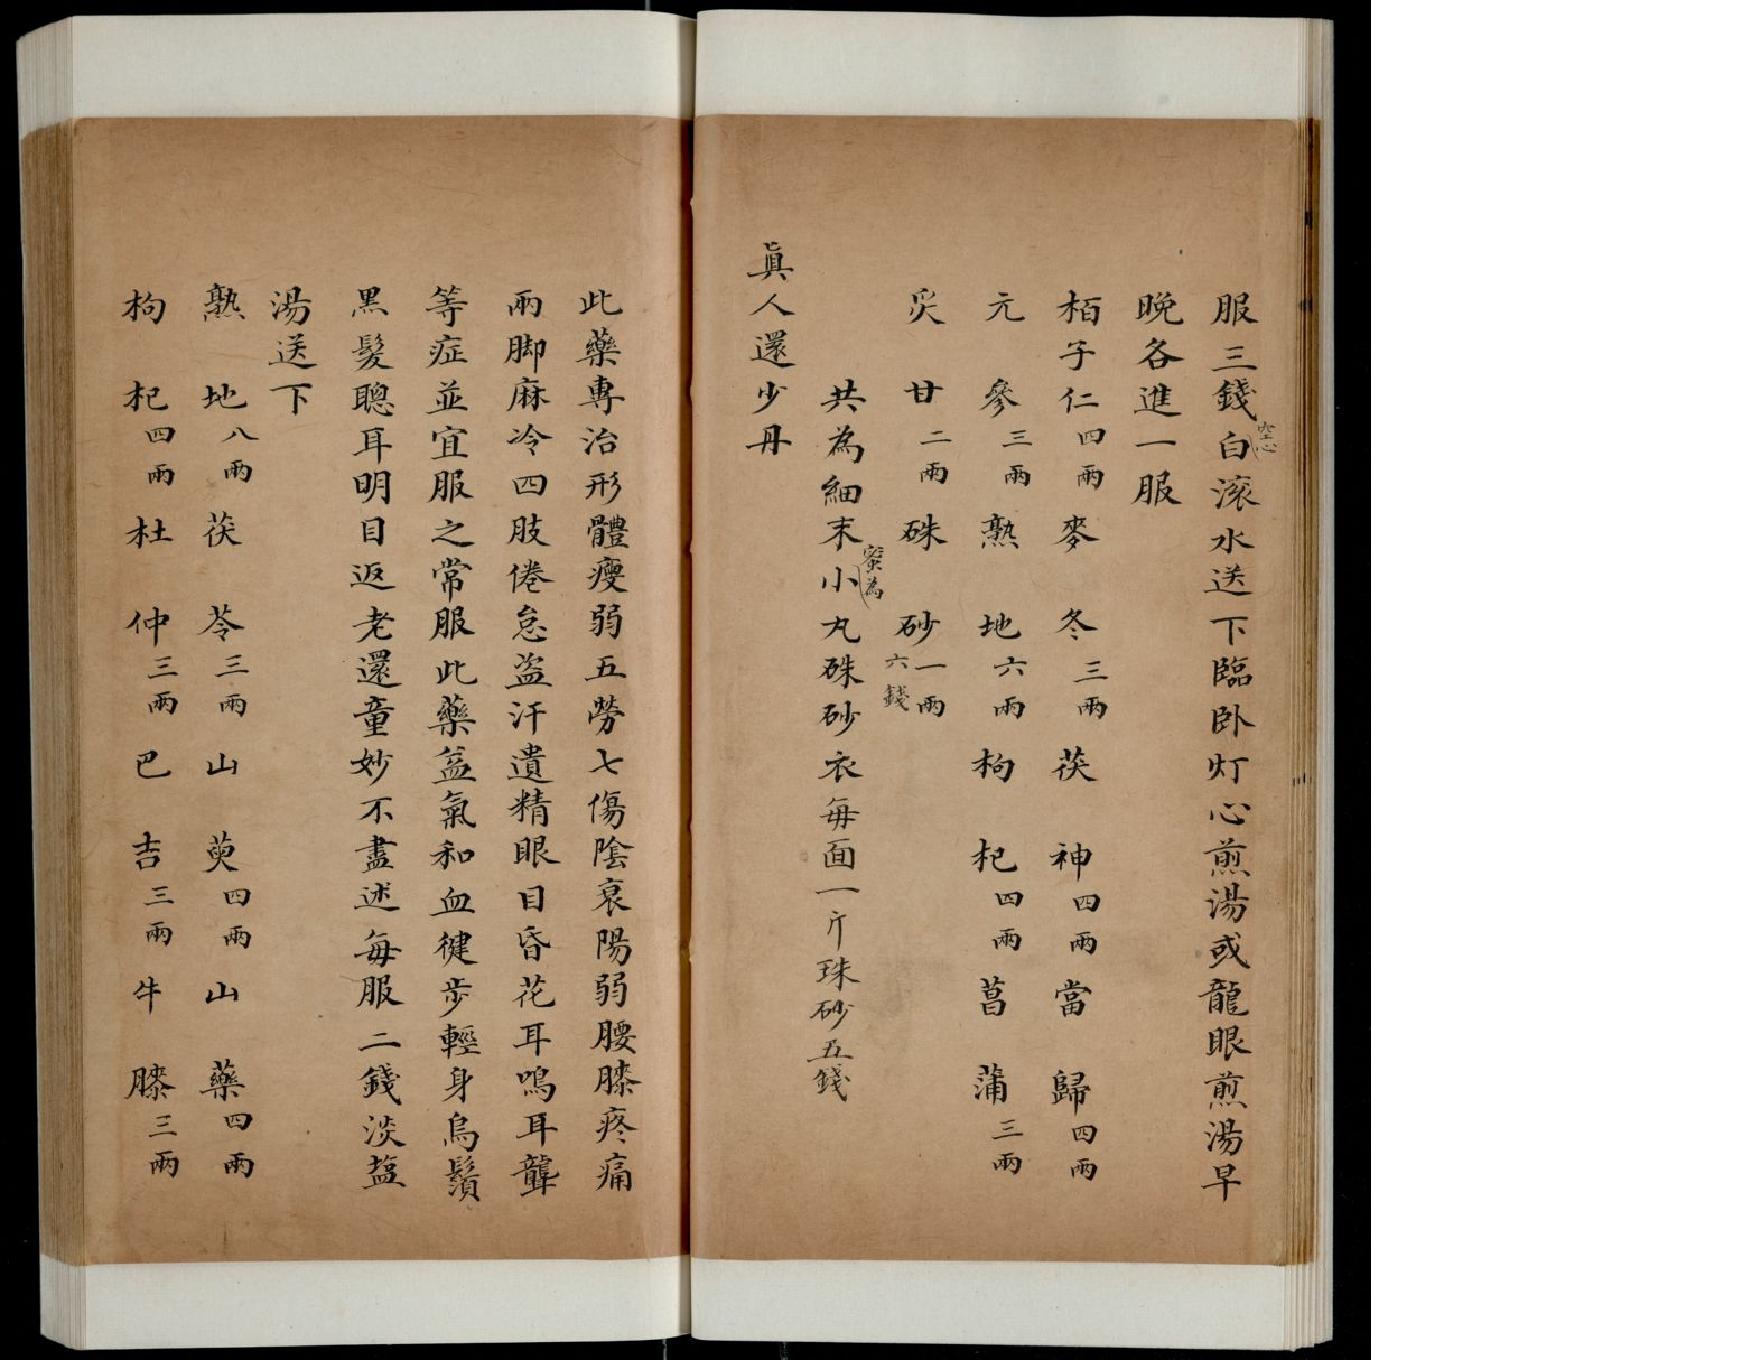 服三錢空心白滚水送下臨卧灯心煎湯或龍眼煎湯早
晚各進一服
栢子仁四兩 麥冬三兩 茯神四兩 當歸四兩
元參三兩 熟地六兩 枸杞四兩 菖蒲三兩
炙甘二兩 硃砂一兩六錢
共為細末蜜為小丸硃砂衣每面一斤珠砂五錢
眞人還少丹
此藥專治形體瘦弱五勞七傷陰衰陽弱腰膝疼痛
兩脚麻冷四肢倦怠盗汗遺精眼目昏花耳鳴耳聾
等症並宜服之常服此藥益氣和血健步輕身烏鬚
黑髮聰耳明目返老還童妙不盡述每服二錢淡塩
湯送下
熟地八兩 茯苓三兩 山萸四兩 山藥四兩
枸杞四兩 杜仲三兩 巴吉三兩 牛膝三兩